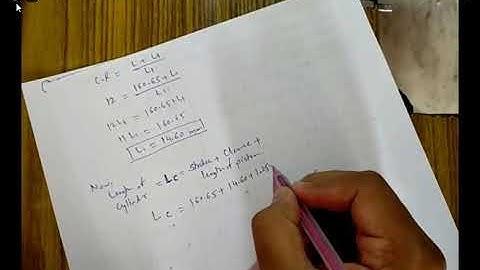 C.R = L + L₁ / L₁
12 = 160.65 + L₁ / L₁
12L₁ = 160.65 + L₁
11 L₁ = 160.65
L₁ = 14.60 mm
Now,
Length of cylinder = Lc = stroke + Clearance + length of piston
L c = 160.65 + 14.60 +